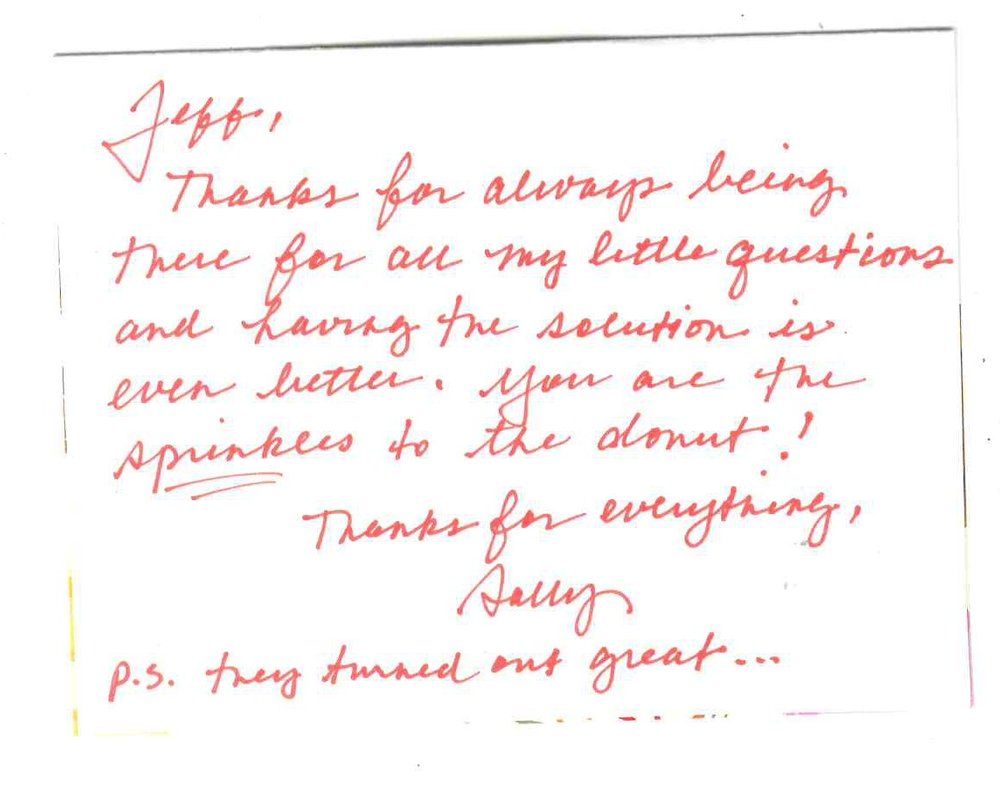 Jeff,
Thanks for always being
there for all my little questions
and having the solution is
even better. You are the
sprinkles to the donut!
Thanks for everything,
Sally
P.S. they turned out great...